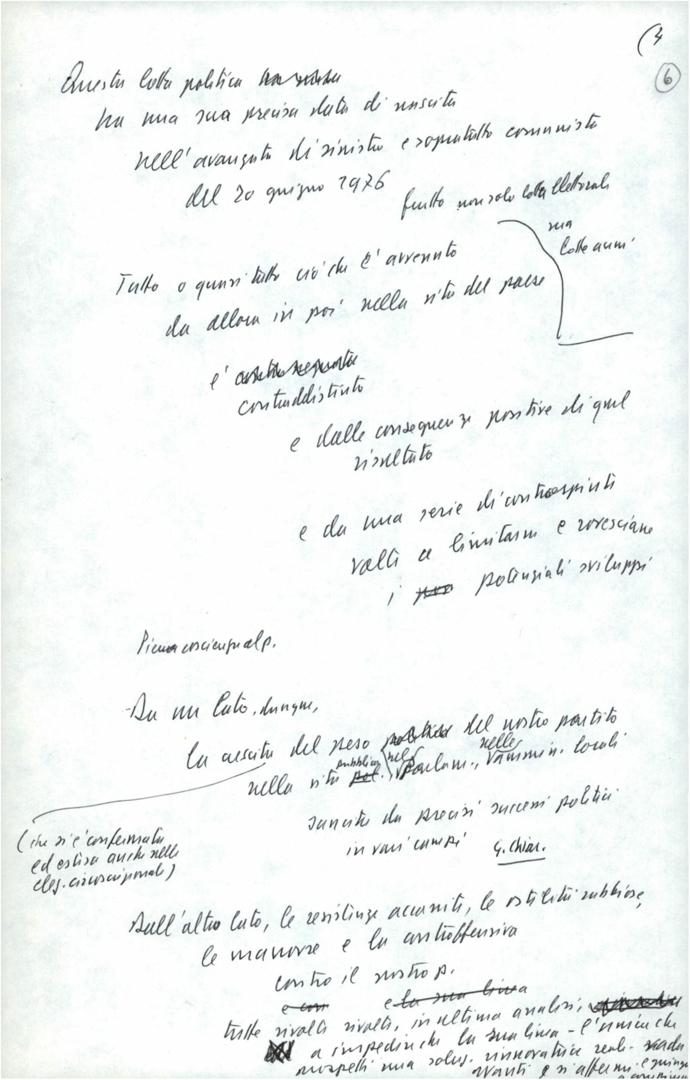 (4
6
Questa lotta politica
ha una sua precisa data di nascita
nell'avanzata di sinistra e sopratutto comunista
del 20 giugno 1976
frutto non solo lotta elettorale
ma
lotte anni
Tutto o quasi tutto ciò che è avvenuto
da allora in poi nella vita del paese
è
contraddistinto
e dalle conseguenze positive di quel
risultato
e da una serie di controspinte
volte a limitarne e rovesciarne
i potenziali sviluppi
Piena coscienza al p.
- Da un lato, dunque,
la crescita del peso politico del nostro partito
nella vita pubblica, nel Parlam., nelle ammin. locali
(che si è confermata
ed estesa anche nelle
elez. circoscrizionali)
sancita da precisi successi politici
in vari campi
G. Chiar.
Dall'altro lato, le resistenze accanite, le ostilità rabbiose,
le manovre e la controffensiva
contro il nostro p.
e la sua linea
tutte rivolte, in ultima analisi,
a impedire che la sua linea - l'unica che
prospetti una soluz. rinnovatrice reale - vada
avanti e si affermi e giunga